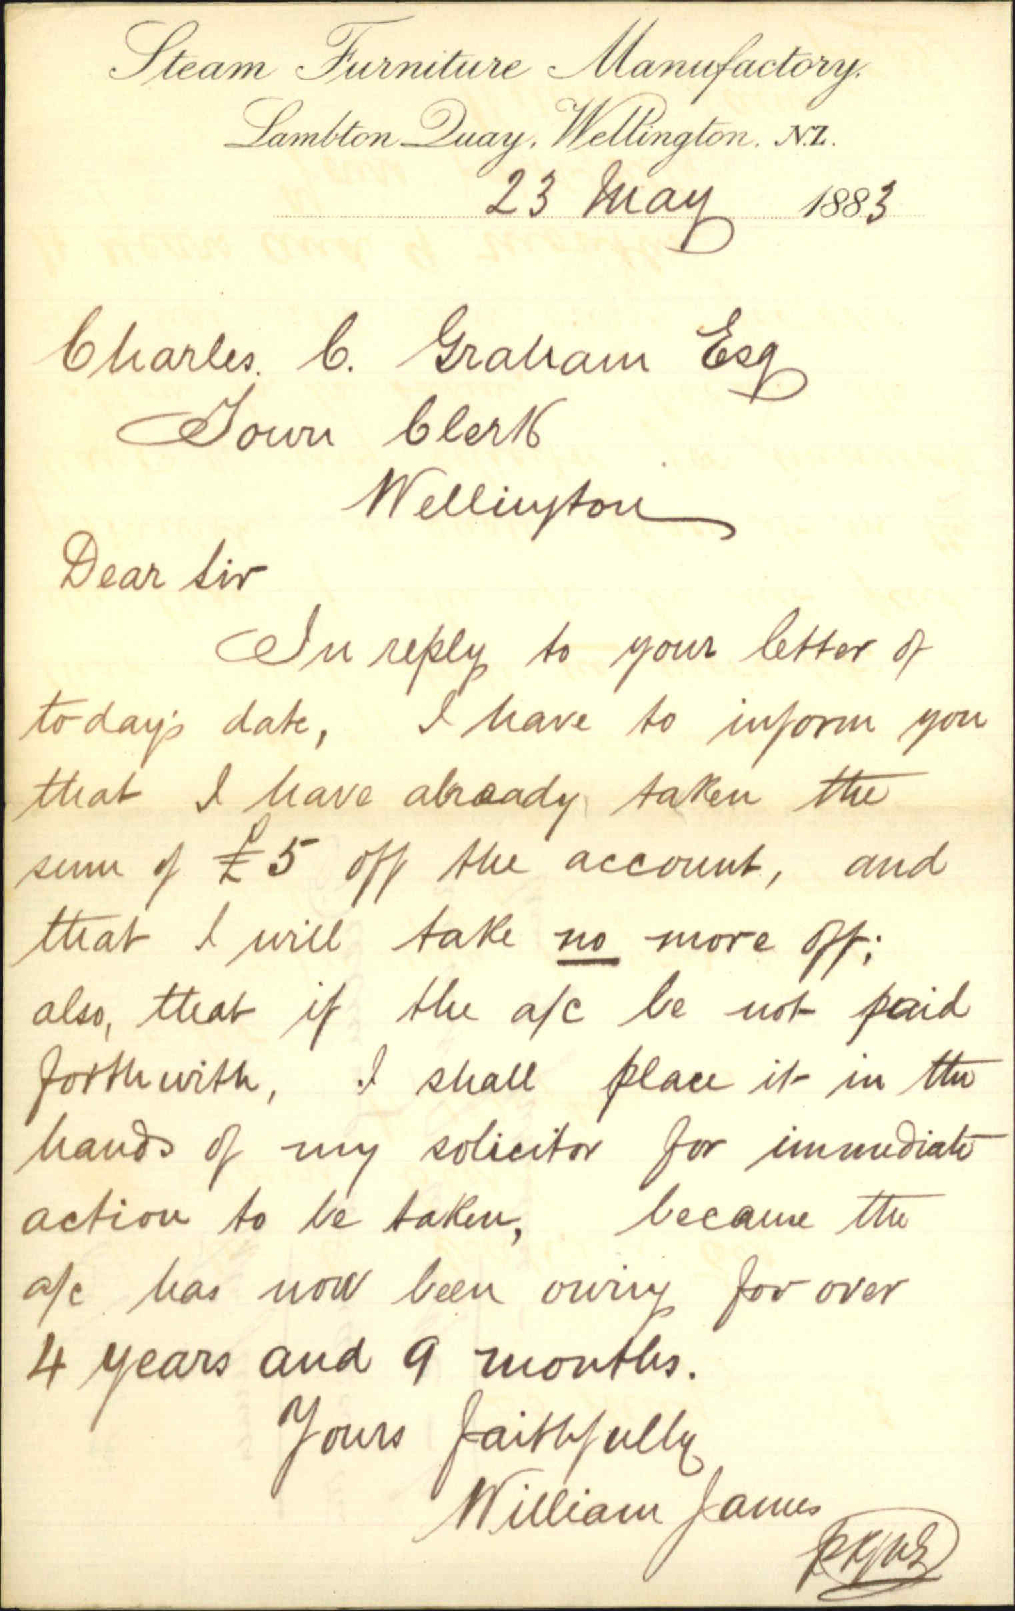 Steam Furniture Manufactory.
Lambton Quay, Wellington. N.Z.
23 May 1883
Charles. C. Graham Esq
Town Clerk
Wellington
Dear Sir
In reply to your letter of
to-day's date, I have to inform you
that I have already taken the
sum of £5 off the account, and
that I will take no more off;
also, that if the a/c be not paid
forthwith, I shall place it in the
hands of my solicitor for immediate
action to be taken, because the
a/c has now been owing for over
4 years and 9 months.
Yours faithfully
William James